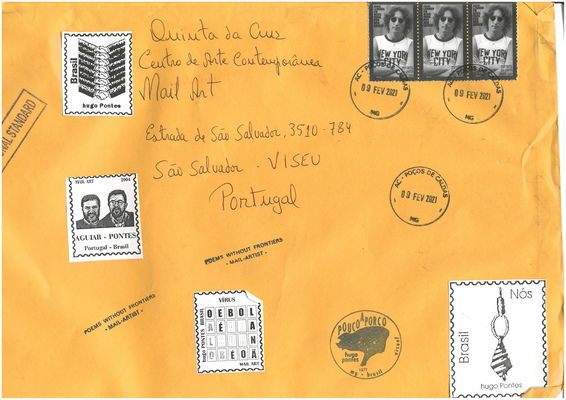 Quinta da Cruz
Centro de Arte Contemporânea
Mail Art
Estrada de São Salvador, 3510-784
São Salvador - VISEU
Portugal
Brasil
hugo Pontes
NAL STANDARD
NEW YORK
CITY
NEW YORK
CITY
NEW YORK
CITY
AC - POÇOS DE CALDAS
09 FEV 2021
MG
AC - POÇOS DE CALDAS
09 FEV 2021
MG
AC - POÇOS DE CALDAS
09 FEV 2021
MG
MAIL ART 2004
AGUIAR - PONTES
Portugal - Brasil
POEMS WITHOUT FRONTIERS
- MAIL-ARTIST -
POEMS WITHOUT FRONTIERS
- MAIL-ARTIST -
VÍRUS
hugo PONTES BRASIL
MAIL ART
POUCO A PORCO
hugo
pontes
1977
mg - brasil
Nós
Brasil
hugo Pontes